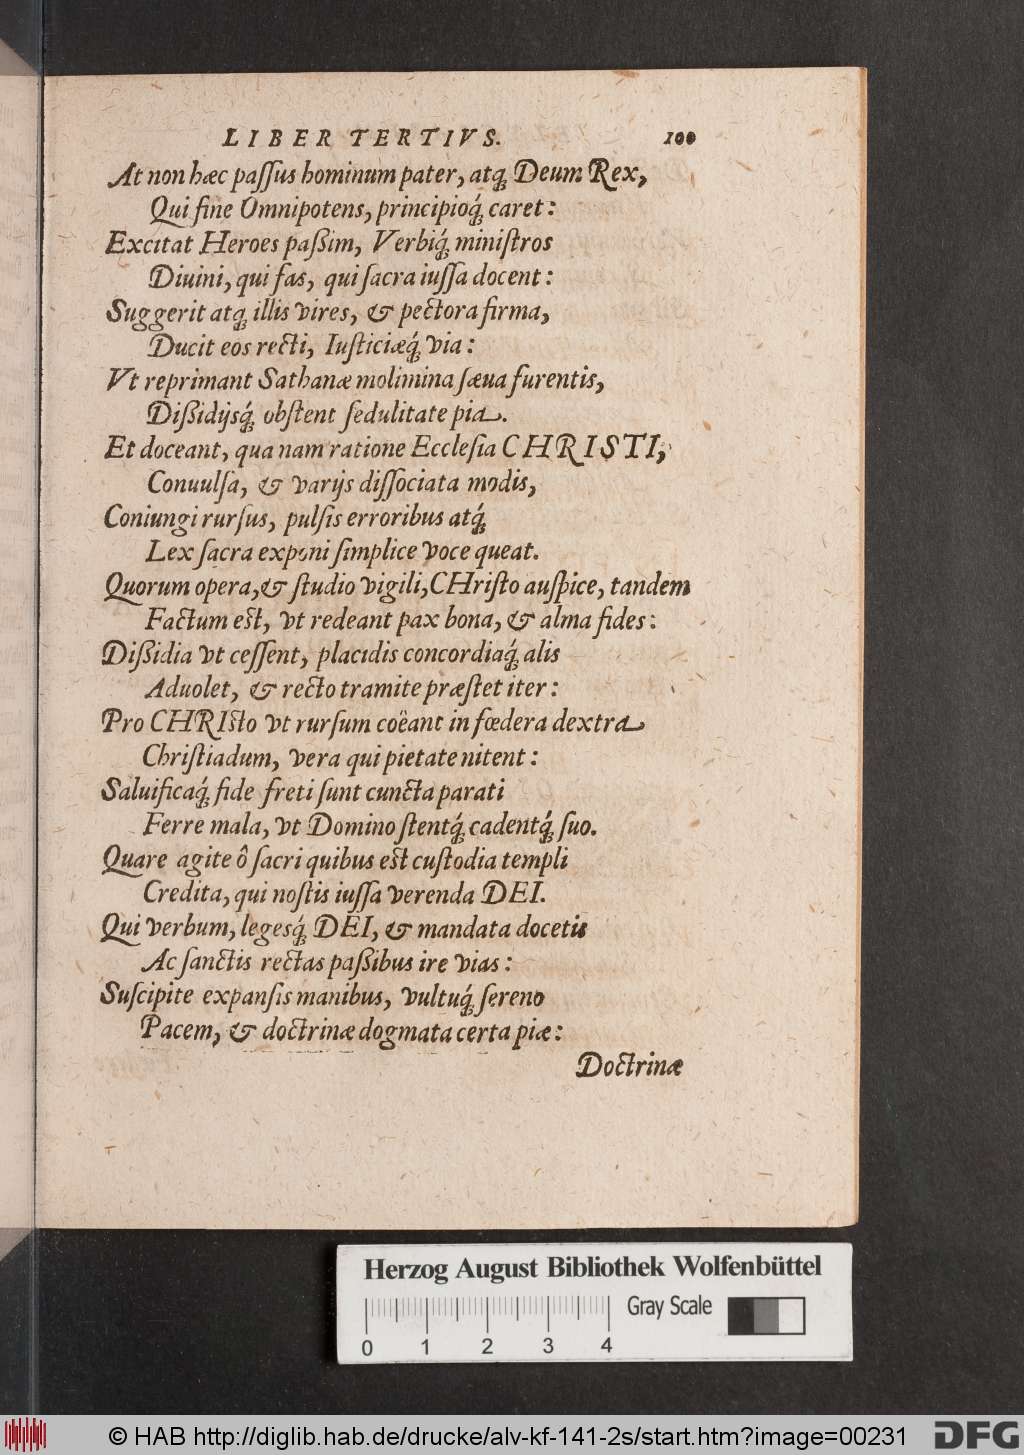 LIBER TERTIVS. 100
At non hæc paſſus hominum pater, atq́; Deum Rex,
Qui fine Omnipotens, principioq́; caret:
Excitat Heroes paßim, Verbiq́; miniſtros
Diuini, qui fas, qui ſacra iuſſa docent:
Suggerit atq; illis vires, & pectora firma,
Ducit eos recti, Iuſticiæq́; via:
Vt reprimant Sathanæ molimina ſæua furentis,
Dißidijsq́; obſtent ſedulitate pia.
Et doceant, qua nam ratione Eccleſia CHRISTI,
Conuulſa, & varijs diſſociata modis,
Coniungi rurſus, pulſis erroribus atq́;
Lex ſacra exponi ſimplice voce queat.
Quorum opera, & ſtudio vigili, CHriſto auſpice, tandem
Factum eſt, vt redeant pax bona, & alma fides:
Dißidia vt ceſſent, placidis concordiaq́; alis
Aduolet, & recto tramite præſtet iter:
Pro CHRISto vt rurſum coëant in fœdera dextra
Chriſtiadum, vera qui pietate nitent:
Saluificaq́; fide freti ſunt cuncta parati
Ferre mala, vt Domino ſtentq́; cadentq́; ſuo.
Quare agite ô ſacri quibus eſt cuſtodia templi
Credita, qui noſtis iuſſa verenda DEI.
Qui verbum, legesq́; DEI, & mandata docetis
Ac ſanctis rectas paßibus ire vias:
Suſcipite expanſis manibus, vultuq́; ſereno
Pacem, & doctrinæ dogmata certa piæ:
Doctrinæ
Herzog August Bibliothek Wolfenbüttel
Gray Scale
0 1 2 3 4
© HAB http://diglib.hab.de/drucke/alv-kf-141-2s/start.htm?image=00231
DFG